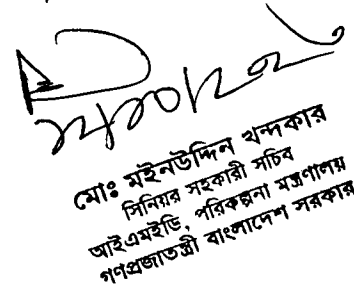 মোঃ মইনউদ্দিন খন্দকার
সিনিয়র সহকারী সচিব
আইএমইডি, পরিকল্পনা মন্ত্রণালয়
গণপ্রজাতন্ত্রী বাংলাদেশ সরকার